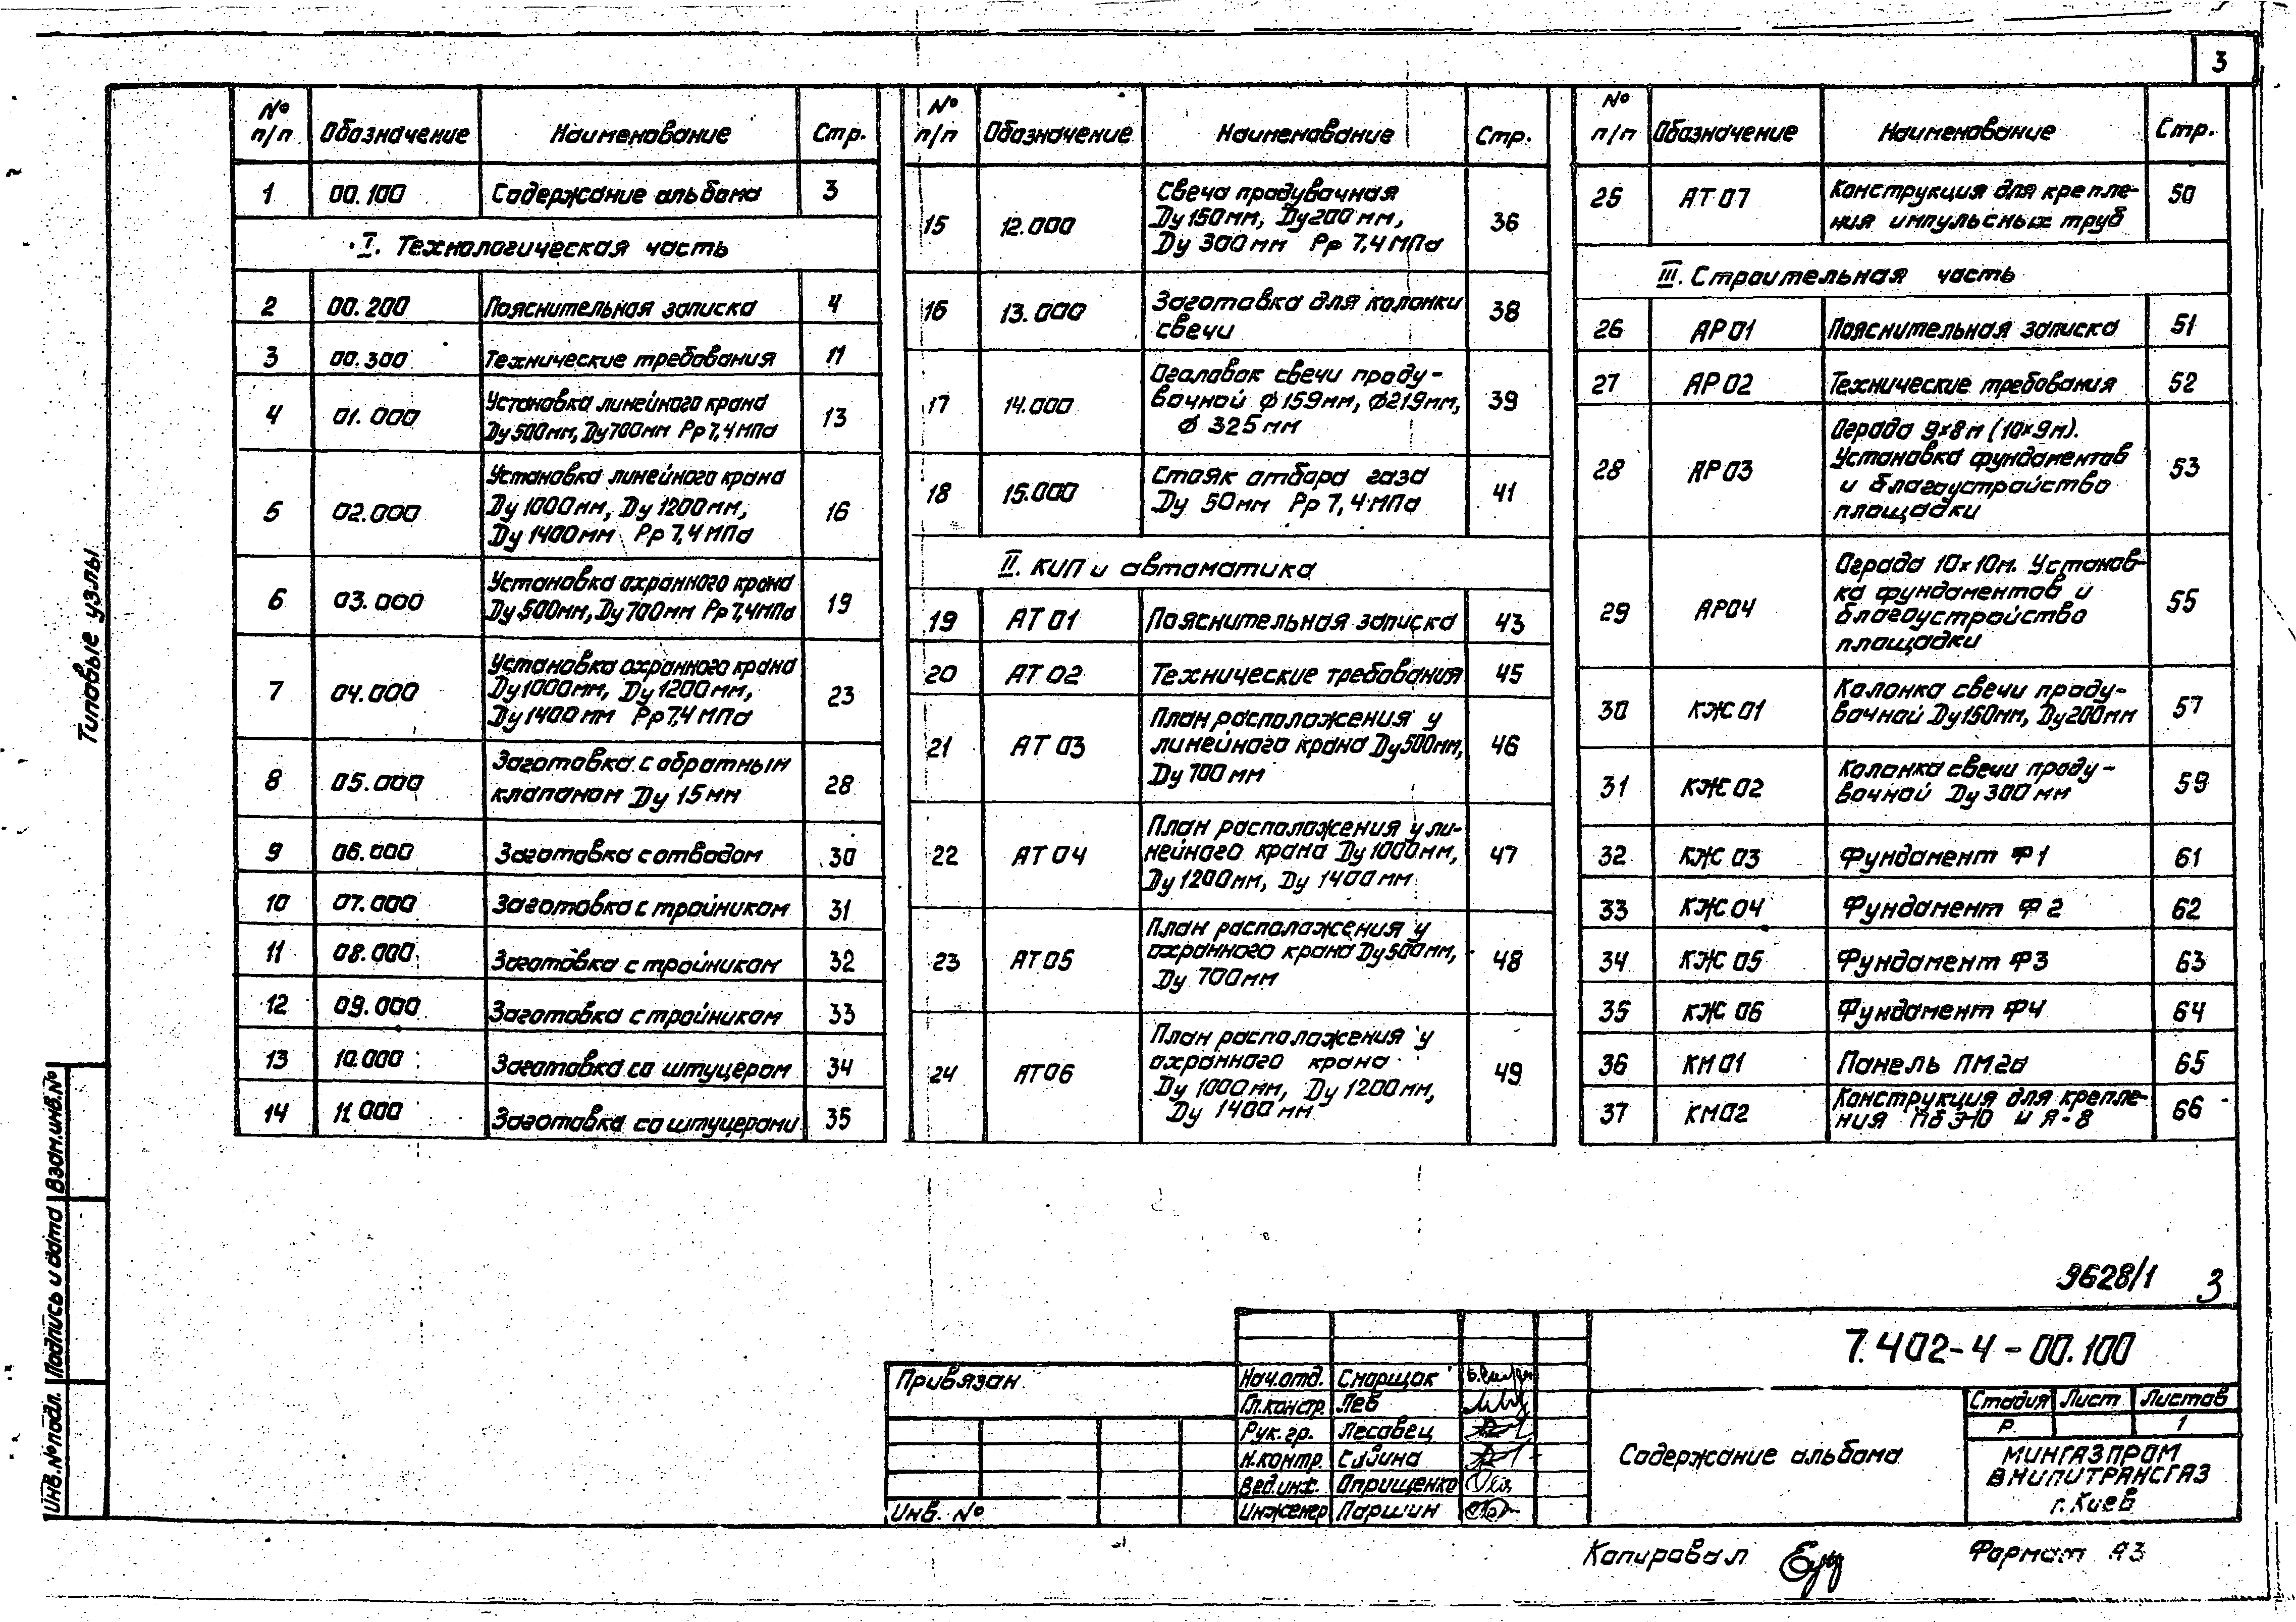 3
№ п/п Обозначение Наименование Стр.
1 00.100 Содержание альбома 3
I. Технологическая часть
2 00.200 Пояснительная записка 4
3 00.300 Технические требования 11
4 01.000 Установка линейного крана
Ду 500мм, Ду 700мм Рр 7,4 МПа 13
5 02.000 Установка линейного крана
Ду 1000мм, Ду 1200мм,
Ду 1400мм Рр 7,4 МПа 16
6 03.000 Установка охранного крана
Ду 500мм, Ду 700мм Рр 7,4 МПа 19
7 04.000 Установка охранного крана
Ду 1000мм, Ду 1200мм,
Ду 1400мм Рр 7,4 МПа 23
8 05.000 Заготовка с обратным
клапаном Ду 15мм 28
9 06.000 Заготовка с отводом 30
10 07.000 Заготовка с тройником 31
11 08.000 Заготовка с тройником 32
12 09.000 Заготовка с тройником 33
13 10.000 Заготовка со штуцером 34
14 11.000 Заготовка со штуцерами 35
№ п/п Обозначение Наименование Стр.
15 12.000 Свеча продувочная
Ду 150мм, Ду 200мм,
Ду 300мм Рр 7,4 МПа 36
16 13.000 Заготовка для колонки
свечи 38
17 14.000 Оголовок свечи проду-
вочной ф 159мм, ф 219мм,
ф 325мм 39
18 15.000 Стояк отбора газа
Ду 50мм Рр 7,4 МПа 41
II. КИП и автоматика
19 АТ 01 Пояснительная записка 43
20 АТ 02 Технические требования 45
21 АТ 03 План расположения у
линейного крана Ду 500мм,
Ду 700мм 46
22 АТ 04 План расположения у ли-
нейного крана Ду 1000мм,
Ду 1200мм, Ду 1400мм 47
23 АТ 05 План расположения у
охранного крана Ду 500мм,
Ду 700мм 48
24 АТ 06 План расположения у
охранного крана
Ду 1000мм, Ду 1200мм,
Ду 1400мм 49
№ п/п Обозначение Наименование Стр.
25 АТ 07 Конструкция для крепле-
ния импульсных труб 50
III. Строительная часть
26 АР 01 Пояснительная записка 51
27 АР 02 Технические требования 52
28 АР 03 Ограда 9×8м (10×9м).
Установка фундаментов
и благоустройство
площадки 53
29 АР 04 Ограда 10×10м. Установ-
ка фундаментов и
благоустройство
площадки 55
30 КЖ 01 Колонка свечи проду-
вочной Ду 150мм, Ду 200мм 57
31 КЖ 02 Колонка свечи проду-
вочной Ду 300мм 59
32 КЖ 03 Фундамент Ф1 61
33 КЖ 04 Фундамент Ф2 62
34 КЖ 05 Фундамент Ф3 63
35 КЖ 06 Фундамент Ф4 64
36 КМ 01 Панель ПМ2а 65
37 КМ 02 Конструкция для крепле-
ния и Я-8 66
Типовые узлы
Взам. инв. №
Подпись и дата
Инв. № подл.
9628/1 3
7.402-4-00.100
Привязан
Инв. №
Нач. отд. Сморщок
Гл. констр. Лев
Рук. гр. Лесовец
Н. контр.
Вед. инж. Оприщенко
Инженер Паршин
Содержание альбома
Стадия Лист Листов
Р 1
МИНГАЗПРОМ
ВНИПИТРАНСГАЗ
г. Киев
Копировал
Формат А3